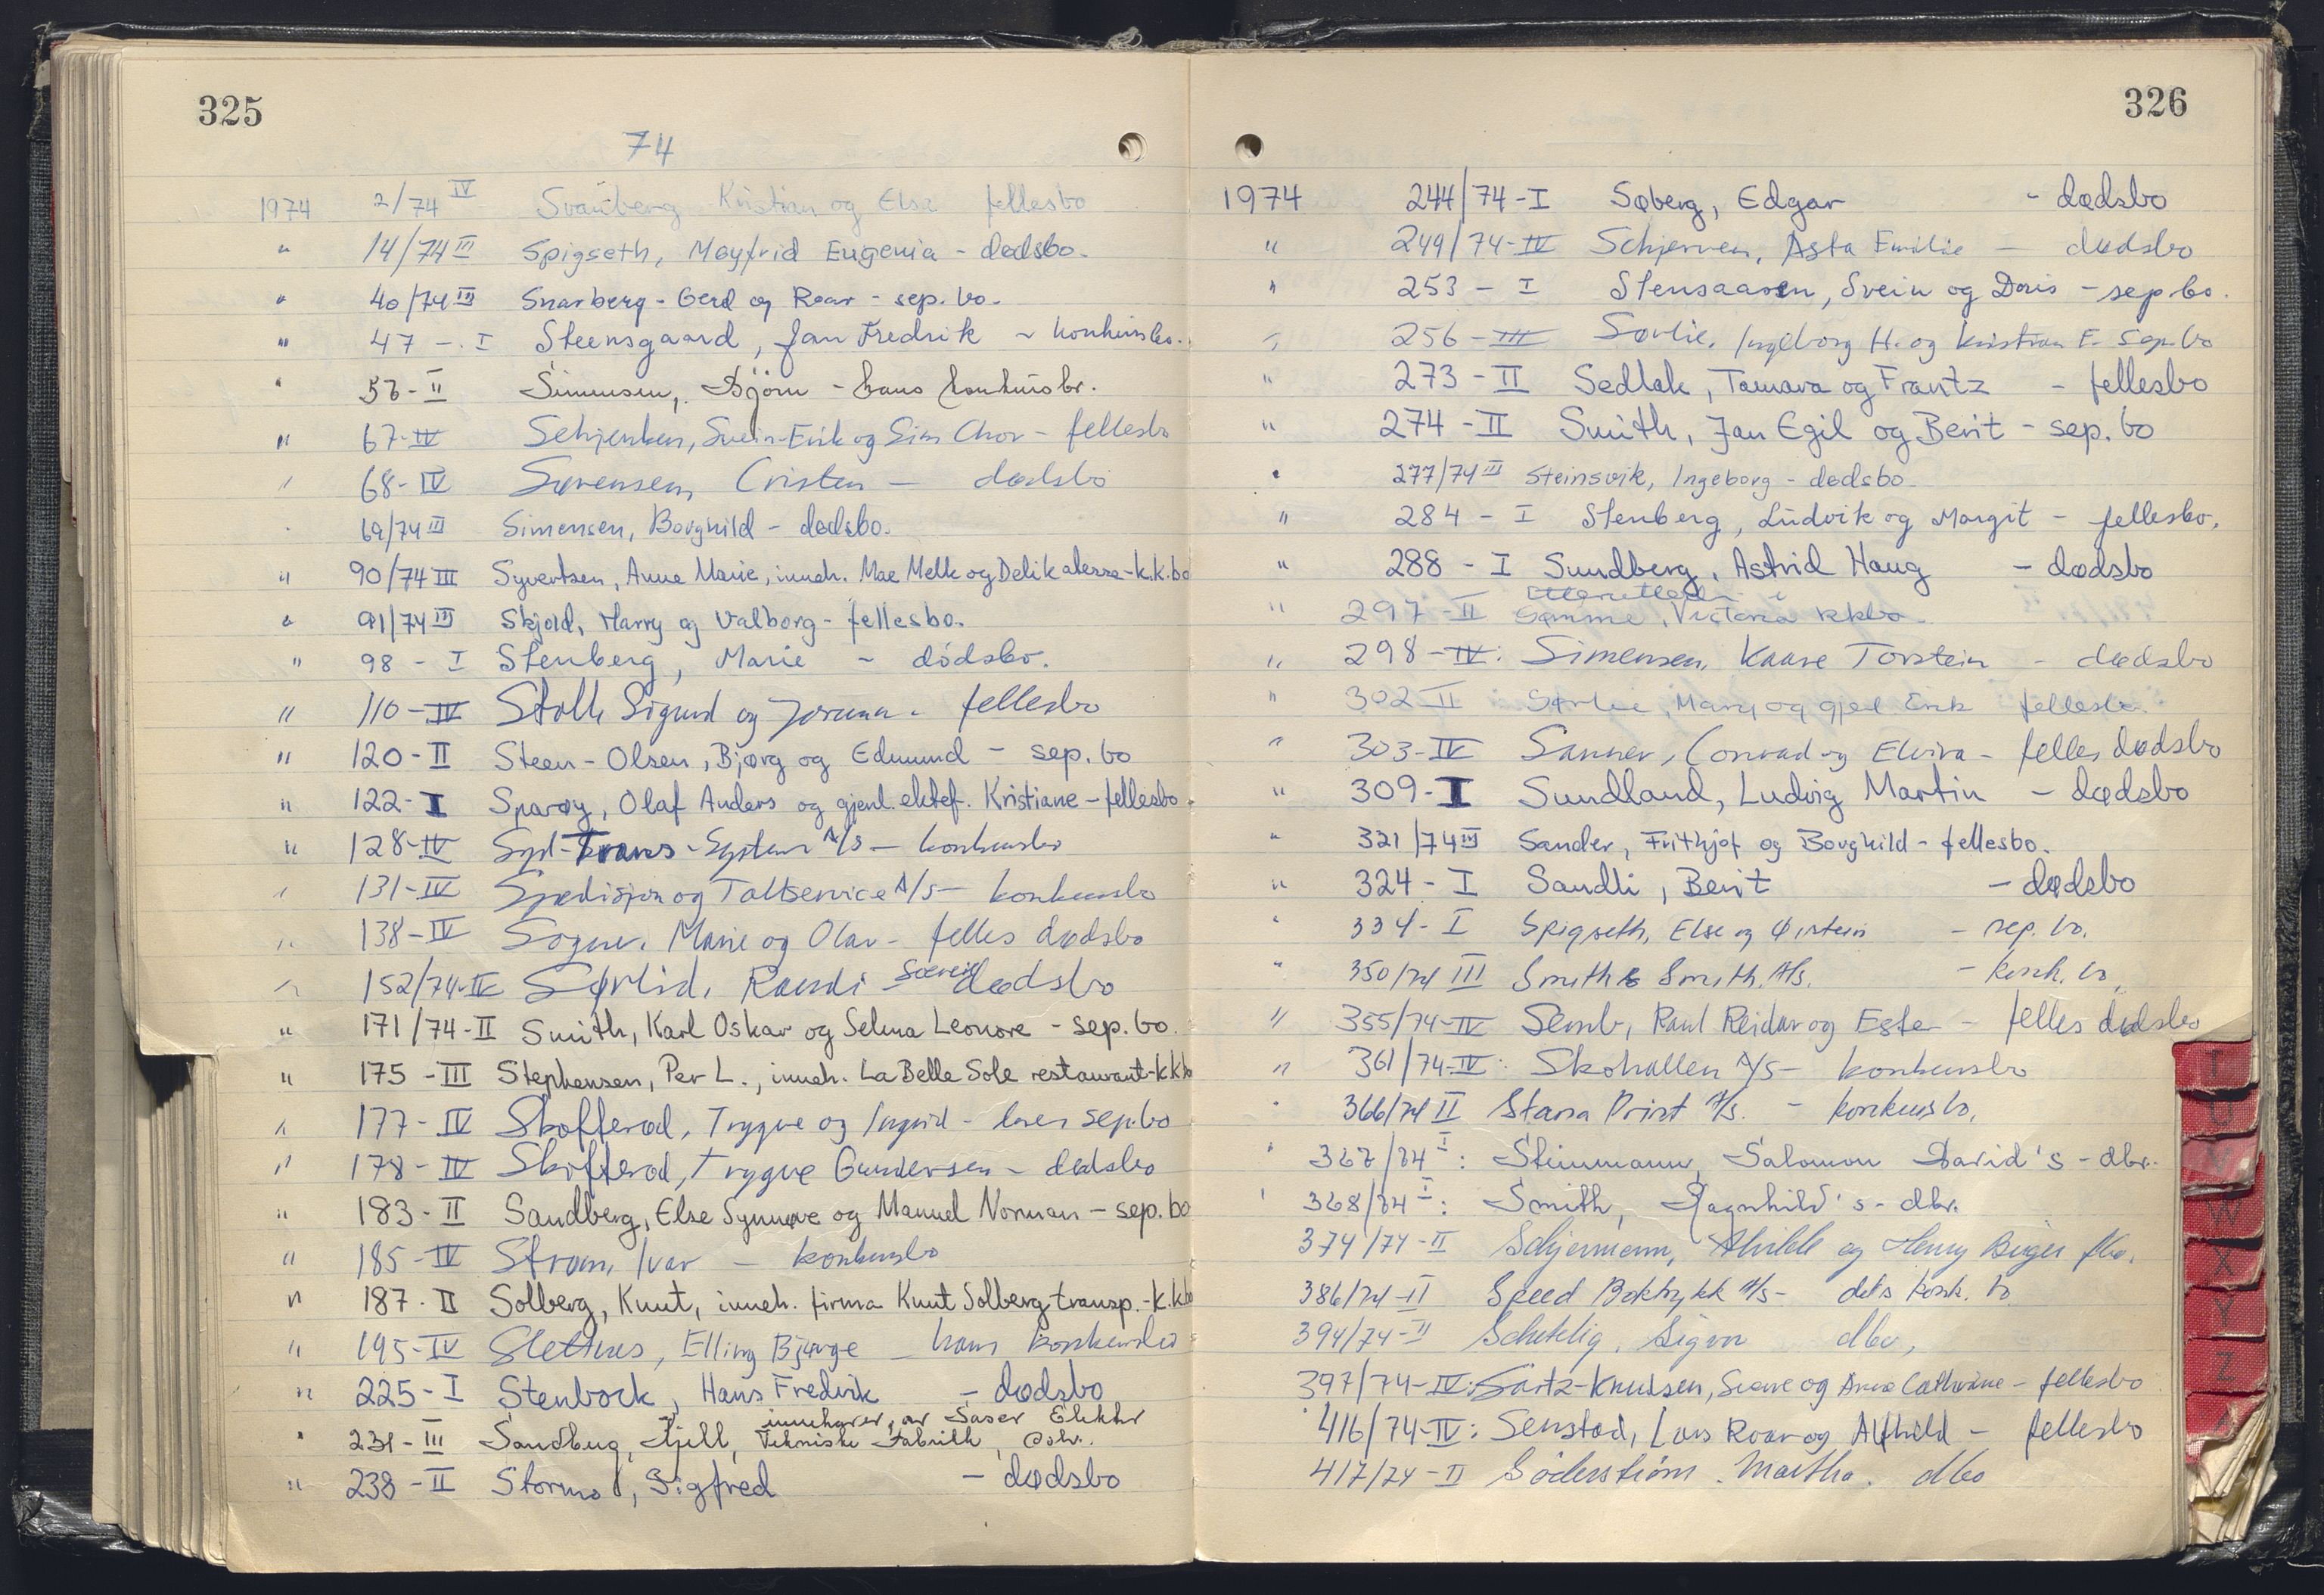 325
74
1974 2/74 IV Svanberg Kristian og Elsa fellesbo
" 14/74 III Spigseth, Møyfrid Eugenia - dødsbo.
" 40/74 III Snarberg - Gerd og Roar - sep. bo.
" 47 - I Steensgaard, Jan Fredrik - konkursbo.
" 56 - II Simensen, Bjørn - hans konkursbr.
" 67-IV Schjenken, Svein-Erik og Sim Chor - fellesbo
" 68-IV Sørensen, Cristen - dødsbo
" 69/74 III Simensen, Borghild - dødsbo.
" 90/74 III Syvertsen, Anne Marie, inneh. Mae Melk og Delikatesse - k.k.bo
" 91/74 III Skjold, Harry og Valborg - fellesbo.
" 98 - I Stenberg, Marie - dödsbo.
" 110-IV Stolk Sigurd og Jorunn - fellesbo
" 120-II Steen-Olsen, Bjørg og Edmund - sep. bo
" 122-I Sparøy, Olaf Anders og gjenl. ektef. Kristiane - fellesbo.
" 128-IV Syd-Trans-System A/S - konkursbo
" 131-IV Spedisjon og Tollservice A/S - konkursbo
" 138-IV Sogner, Marie og Olav - felles dødsbo
" 152/74-IV Sørlid, Randi - særeie dødsbo
" 171/74-II Smith, Karl Oskar og Selma Leonore - sep. bo.
" 175 - III Stephensen, Per L., inneh. La Belle Sole restaurant - k.k.bo
" 177-IV Skofterød, Trygve og Ingrid - sep.bo
" 178-IV Skofterød, Trygve Gundersen - dødsbo
" 183-II Sandberg, Else Synnøve og Manuel Norman - sep. bo
" 185-IV Strøm, Ivar - konkursbo
" 187-II Solberg, Knut, inneh. firma Knut Solberg transp. - k.k.bo
" 195-IV Slettnes, Elling Bjørge - hans konkursbo
" 225-I Stenbock, Hans Fredrik - dødsbo
innehaver av Saser Elektr
" 231-III Sandberg, Kjell, Tekniske Fabrikk,
" 238-II Stormo, Sigfred - dødsbo
326
1974 244/74-I Søberg, Edgar - dødsbo
" 249/74-IV Schjerven, Asta Emilie - dødsbo
" 253 - I Stensaasen, Svein og Doris - sep.bo.
" 256-III Sørlie, Ingeborg H. og Kristian F. sep.bo
" 273-II Sedlak, Tamara og Frantz - fellesbo
" 274-II Smith, Jan Egil og Berit - sep. bo
" 277/74 III Steinsvik, Ingeborg - dødsbo
" 284 - I Stenberg, Ludvik og Margit - fellesbo.
" 288 - I Sundberg, Astrid Haug - dødsbo
" 297-II Sømme, Victoria kkbo
" 298-IV: Simensen, Kaare Torstein - dødsbo
" 302 II Sørlie, Mary og gjel. Erik fellesbo.
" 303-IV Sanner, Conrad og Elvira - felles dødsbo
" 309-I Sundland, Ludvig Martin - dødsbo
" 321/74 III Sander, Frithjof og Borghild - fellesbo.
" 324-I Sandli, Berit - dødsbo
" 334-I Spigseth, Else og Øistein - sep. bo.
" 350/74 III Smith & Smith A/s. - konk. bo.
" 355/74-IV Semb, Paul Reidar og Ester - felles dødsbo
" 361/74-IV: Skohallen A/S - konkursbo
" 366/74 II Stana Print A/s. - konkursbo.
" 367/74 I: Steinmann, Salomon David's - dbr.
" 368/74 I: Smith, Ragnhild's - dbr.
374/74-II Schjermann, Alvilde og Henry Birger fbo.
386/74-II Speed Boktrykk A/s - dets konk. bo
394/74-II Schetelig, Sigrun dbo,
397/74-IV: Sartz-Knudsen, og Anna Cathrine - fellesbo
416/74-IV: Senstad, Lars Roar og Alfhild - fellesbo
417/74-II Söderström, Martha. dbo
T
U
V
W
X
Y
Z